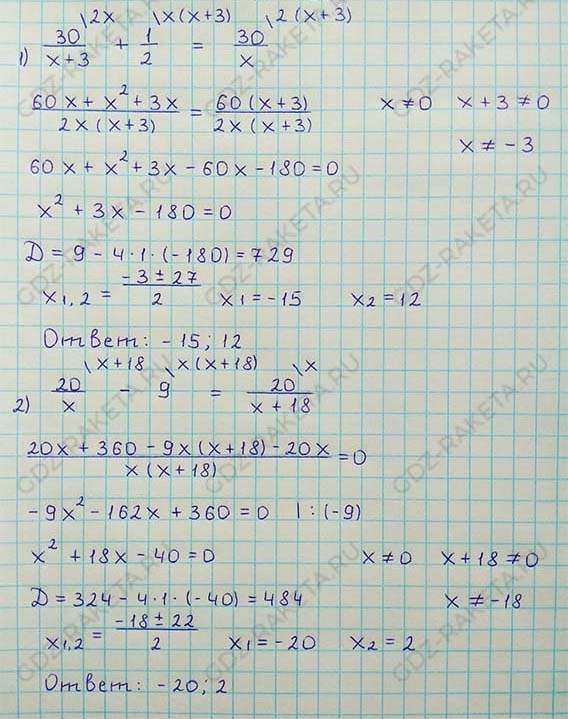 \2x \x(x+3) \2(x+3)
1) 30/(x+3) + 1/2 = 30/x
(60x + x² + 3x)/(2x(x+3)) = (60(x+3))/(2x(x+3)) x ≠ 0 x + 3 ≠ 0
x ≠ -3
60x + x² + 3x - 60x - 180 = 0
x² + 3x - 180 = 0
D = 9 - 4·1·(-180) = 729
x₁,₂ = (-3 ± 27)/2 x₁ = -15 x₂ = 12
Ответ: -15; 12
\x+18 \x(x+18) \x
2) 20/x - 9 = 20/(x+18)
(20x + 360 - 9x(x+18) - 20x)/(x(x+18)) = 0
-9x² - 162x + 360 = 0 |:(-9)
x² + 18x - 40 = 0 x ≠ 0 x + 18 ≠ 0
D = 324 - 4·1·(-40) = 484 x ≠ -18
x₁,₂ = (-18 ± 22)/2 x₁ = -20 x₂ = 2
Ответ: -20; 2
GDZ-RAKETA.RU